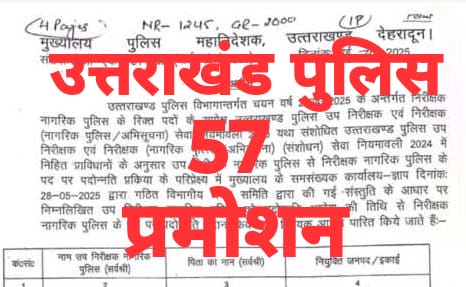 (4 Pages NR- 1245, GR-2000 (IP)
मुख्यालय पुलिस महानिदेशक, उत्तराखण्ड देहरादून।
2025
उत्तराखंड पुलिस
57
प्रमोशन
उत्तराखण्ड पुलिस विभागान्तर्गत चयन वर्ष 2025 के अन्तर्गत निरीक्षक
नागरिक पुलिस के रिक्त पदों के पुलिस उप निरीक्षक एवं निरीक्षक
(नागरिक पुलिस/अभिसूचना) सेवा यथा संशोधित उत्तराखण्ड पुलिस उप
निरीक्षक एवं निरीक्षक (नागरिक (संशोधन) सेवा नियमावली 2024 में
निहित प्राविधानों के अनुसार उप नागरिक पुलिस से निरीक्षक नागरिक पुलिस के
पद पर पदोन्नति प्रक्रिया के परिप्रेक्ष्य में मुख्यालय के समसंख्यक कार्यालय-ज्ञाप दिनांक:
28-05-2025 द्वारा गठित विभागीय समिति द्वारा की गई संस्तुति के आधार पर
निम्नलिखित उप तिथि से निरीक्षक
नागरिक पुलिस के आदेश पारित किये जाते हैं:-
क०सं० नाम उप निरीक्षक नागरिक पुलिस (सर्वश्री) पिता का नाम (सर्वश्री) नियुक्ति जनपद/इकाई
1 2 3 4